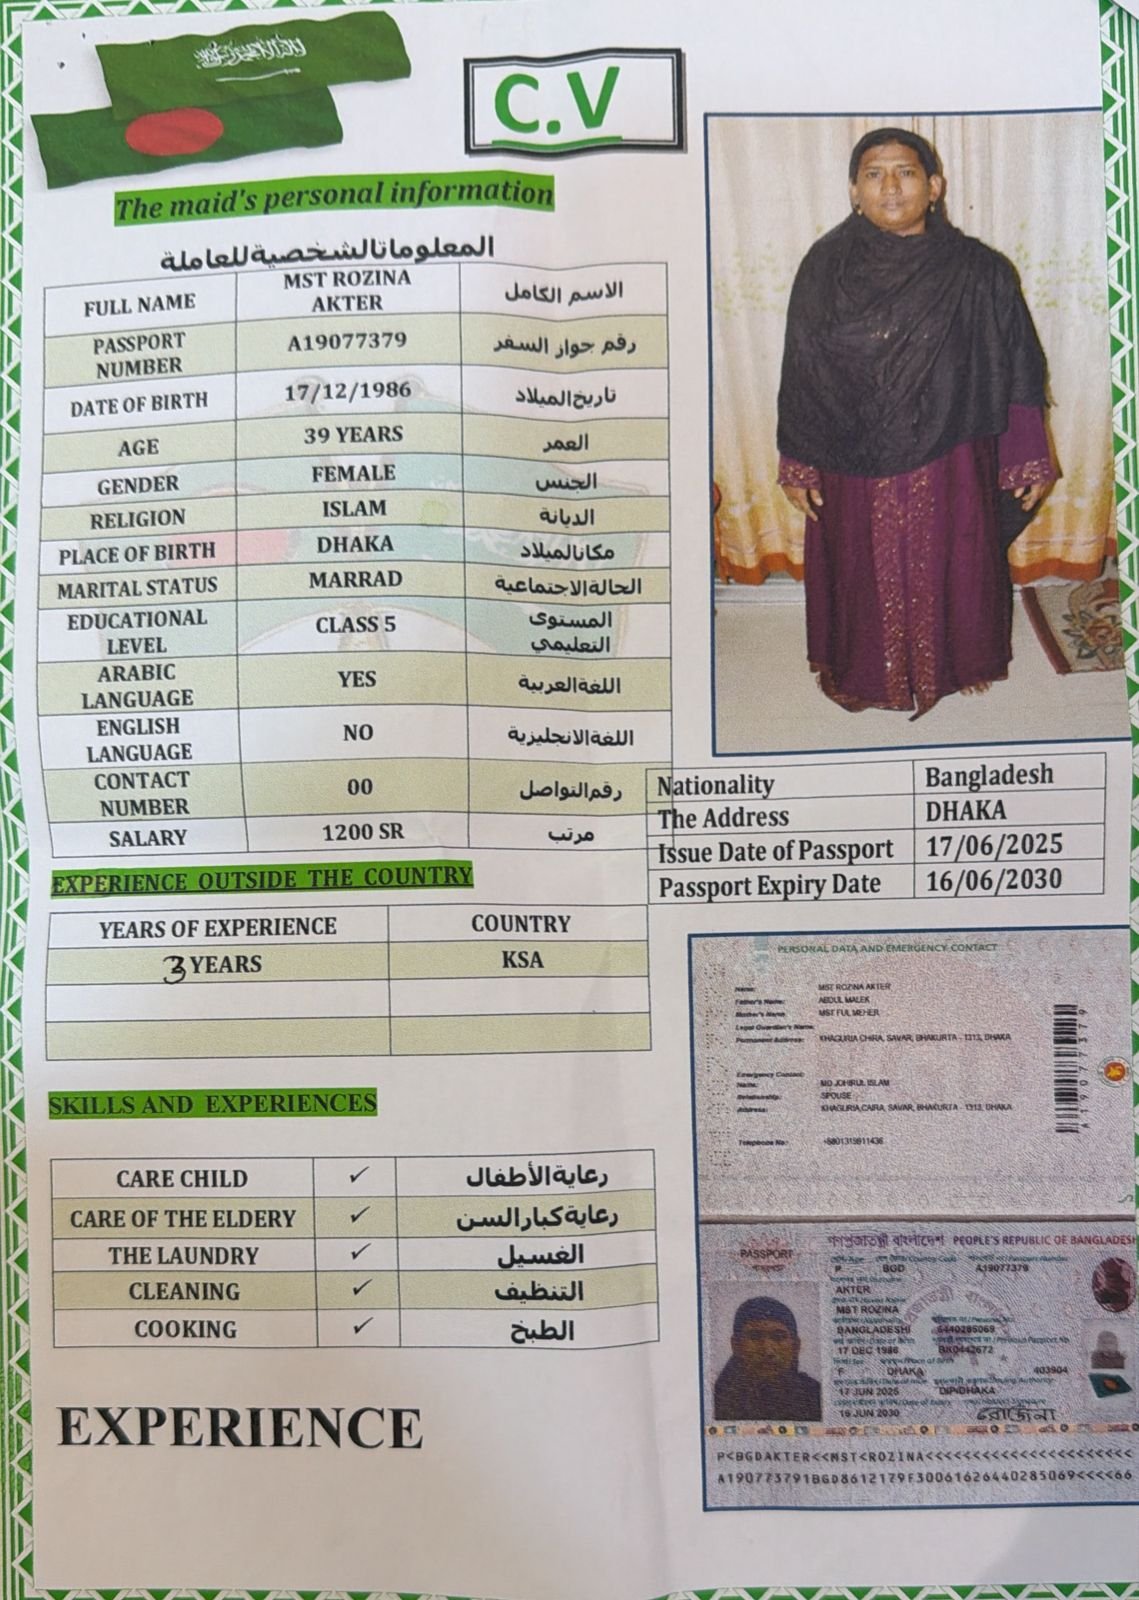 C.V
The maid's personal information
المعلوماتالشخصيةللعاملة
FULL NAME MST ROZINA AKTER الاسم الكامل
PASSPORT NUMBER A19077379 رقم جواز السفر
DATE OF BIRTH 17/12/1986 تاريخالميلاد
AGE 39 YEARS العمر
GENDER FEMALE الجنس
RELIGION ISLAM الديانة
PLACE OF BIRTH DHAKA مكانالميلاد
MARITAL STATUS MARRAD الحالةالاجتماعية
EDUCATIONAL LEVEL CLASS 5 المستوى التعليمي
ARABIC LANGUAGE YES اللغةالعربية
ENGLISH LANGUAGE NO اللغةالانجليزية
CONTACT NUMBER 00 رقمالتواصل
SALARY 1200 SR مرتب
Nationality Bangladesh
The Address DHAKA
Issue Date of Passport 17/06/2025
Passport Expiry Date 16/06/2030
EXPERIENCE OUTSIDE THE COUNTRY
YEARS OF EXPERIENCE COUNTRY
3 YEARS KSA
SKILLS AND EXPERIENCES
CARE CHILD ✓ رعايةالأطفال
CARE OF THE ELDERY ✓ رعايةكبارالسن
THE LAUNDRY ✓ الغسيل
CLEANING ✓ التنظيف
COOKING ✓ الطبخ
EXPERIENCE
PERSONAL DATA AND EMERGENCY CONTACT
Name: MST ROZINA AKTER
Father's Name: ABDUL MALEK
Mother's Name: MST FUL MEHER
Legal Guardian's Name:
Permanent Address: KHAGURIA CHIRA, SAVAR, BHAKURTA - 1313, DHAKA
Emergency Contact:
Name: MD JOHIRUL ISLAM
Relationship: SPOUSE
Address: KHAGURIA,CAIRA, SAVAR, BHAKURTA - 1313, DHAKA
Telephone No: +8801315911436
A19077379
গণপ্রজাতন্ত্রী বাংলাদেশ PEOPLE'S REPUBLIC OF BANGLADESH
PASSPORT
P BGD A19077379
AKTER
MST ROZINA
BANGLADESHI 6440285069
17 DEC 1986 BK0442672
F DHAKA 403904
17 JUN 2025 DIP/DHAKA
16 JUN 2030 রোজিনা
P<BGDAKTER<<MST<ROZINA<<<<<<<<<<<<<<<<<<<<<<
A190773791BGD8612179F30061626440285069<<<<66